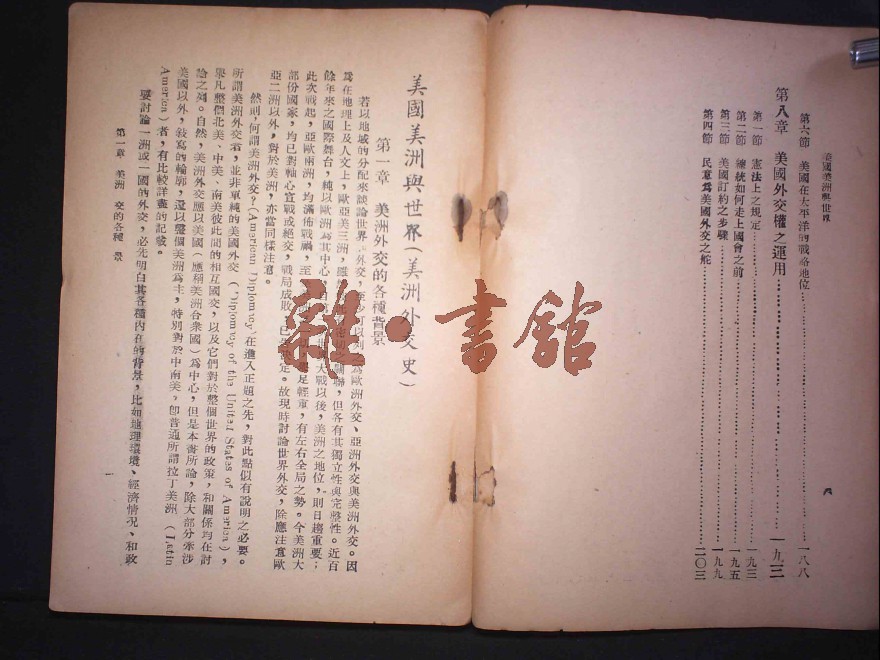 美國美洲與世界
第六節　美國在太平洋的戰略地位……一八八
第八章　美國外交權之運用……一九三
第一節　憲法上之規定……一九三
第二節　總統如何走上國會之前……一九五
第三節　美國訂約之步驟……一九九
第四節　民意爲美國外交之舵……二〇三
八
美國美洲與世界（美洲外交史）
第一章　美洲外交的各種背景
若以地域的分配來談論世界外交，至少可以列爲歐洲外交、亞洲外交與美洲外交。因
爲在地理上及人文上，歐亞美三洲，雖　　　　關聯，但各有其獨立性與完整性。近百
餘年來之國際舞台，純以歐洲爲其中心，　　　大戰以後，美洲之地位，則日趨重要；
此次戰起，亞歐兩洲，均滿佈戰禍，至　　　　足輕重，有左右全局之勢。今美洲大
部份國家，均已對軸心宣戰或絕交，戰局成敗，已　　定。故現時討論世界外交，除應注意歐
亞二洲以外，對於美洲，亦當同樣注意。
然則，何謂美洲外交？(American Diplomcy)在進入正題之先，對此點似有說明之必要。
所謂美洲外交者，並非單純的美國外交（Diplomcy of the United States of America），
舉凡整個北美、中美、南美彼此間的相互國交，以及它們對於整個世界的政策，和關係均在討
論之列。自然，美洲外交應以美國（應稱美洲合衆國）爲中心，但是本書所論，除大部分牽涉
美國以外，敍寫的輪廓，還以整個美洲爲主，特別對於中南美，卽普通所謂拉丁美洲（Latin
America）者，有比較詳盡的記載。
要討論一洲或一國的外交，必先明白其各種內在的背景，比如地理環境、經濟情况、和政
第一章　美洲　交的各種　景
一
雜·書館